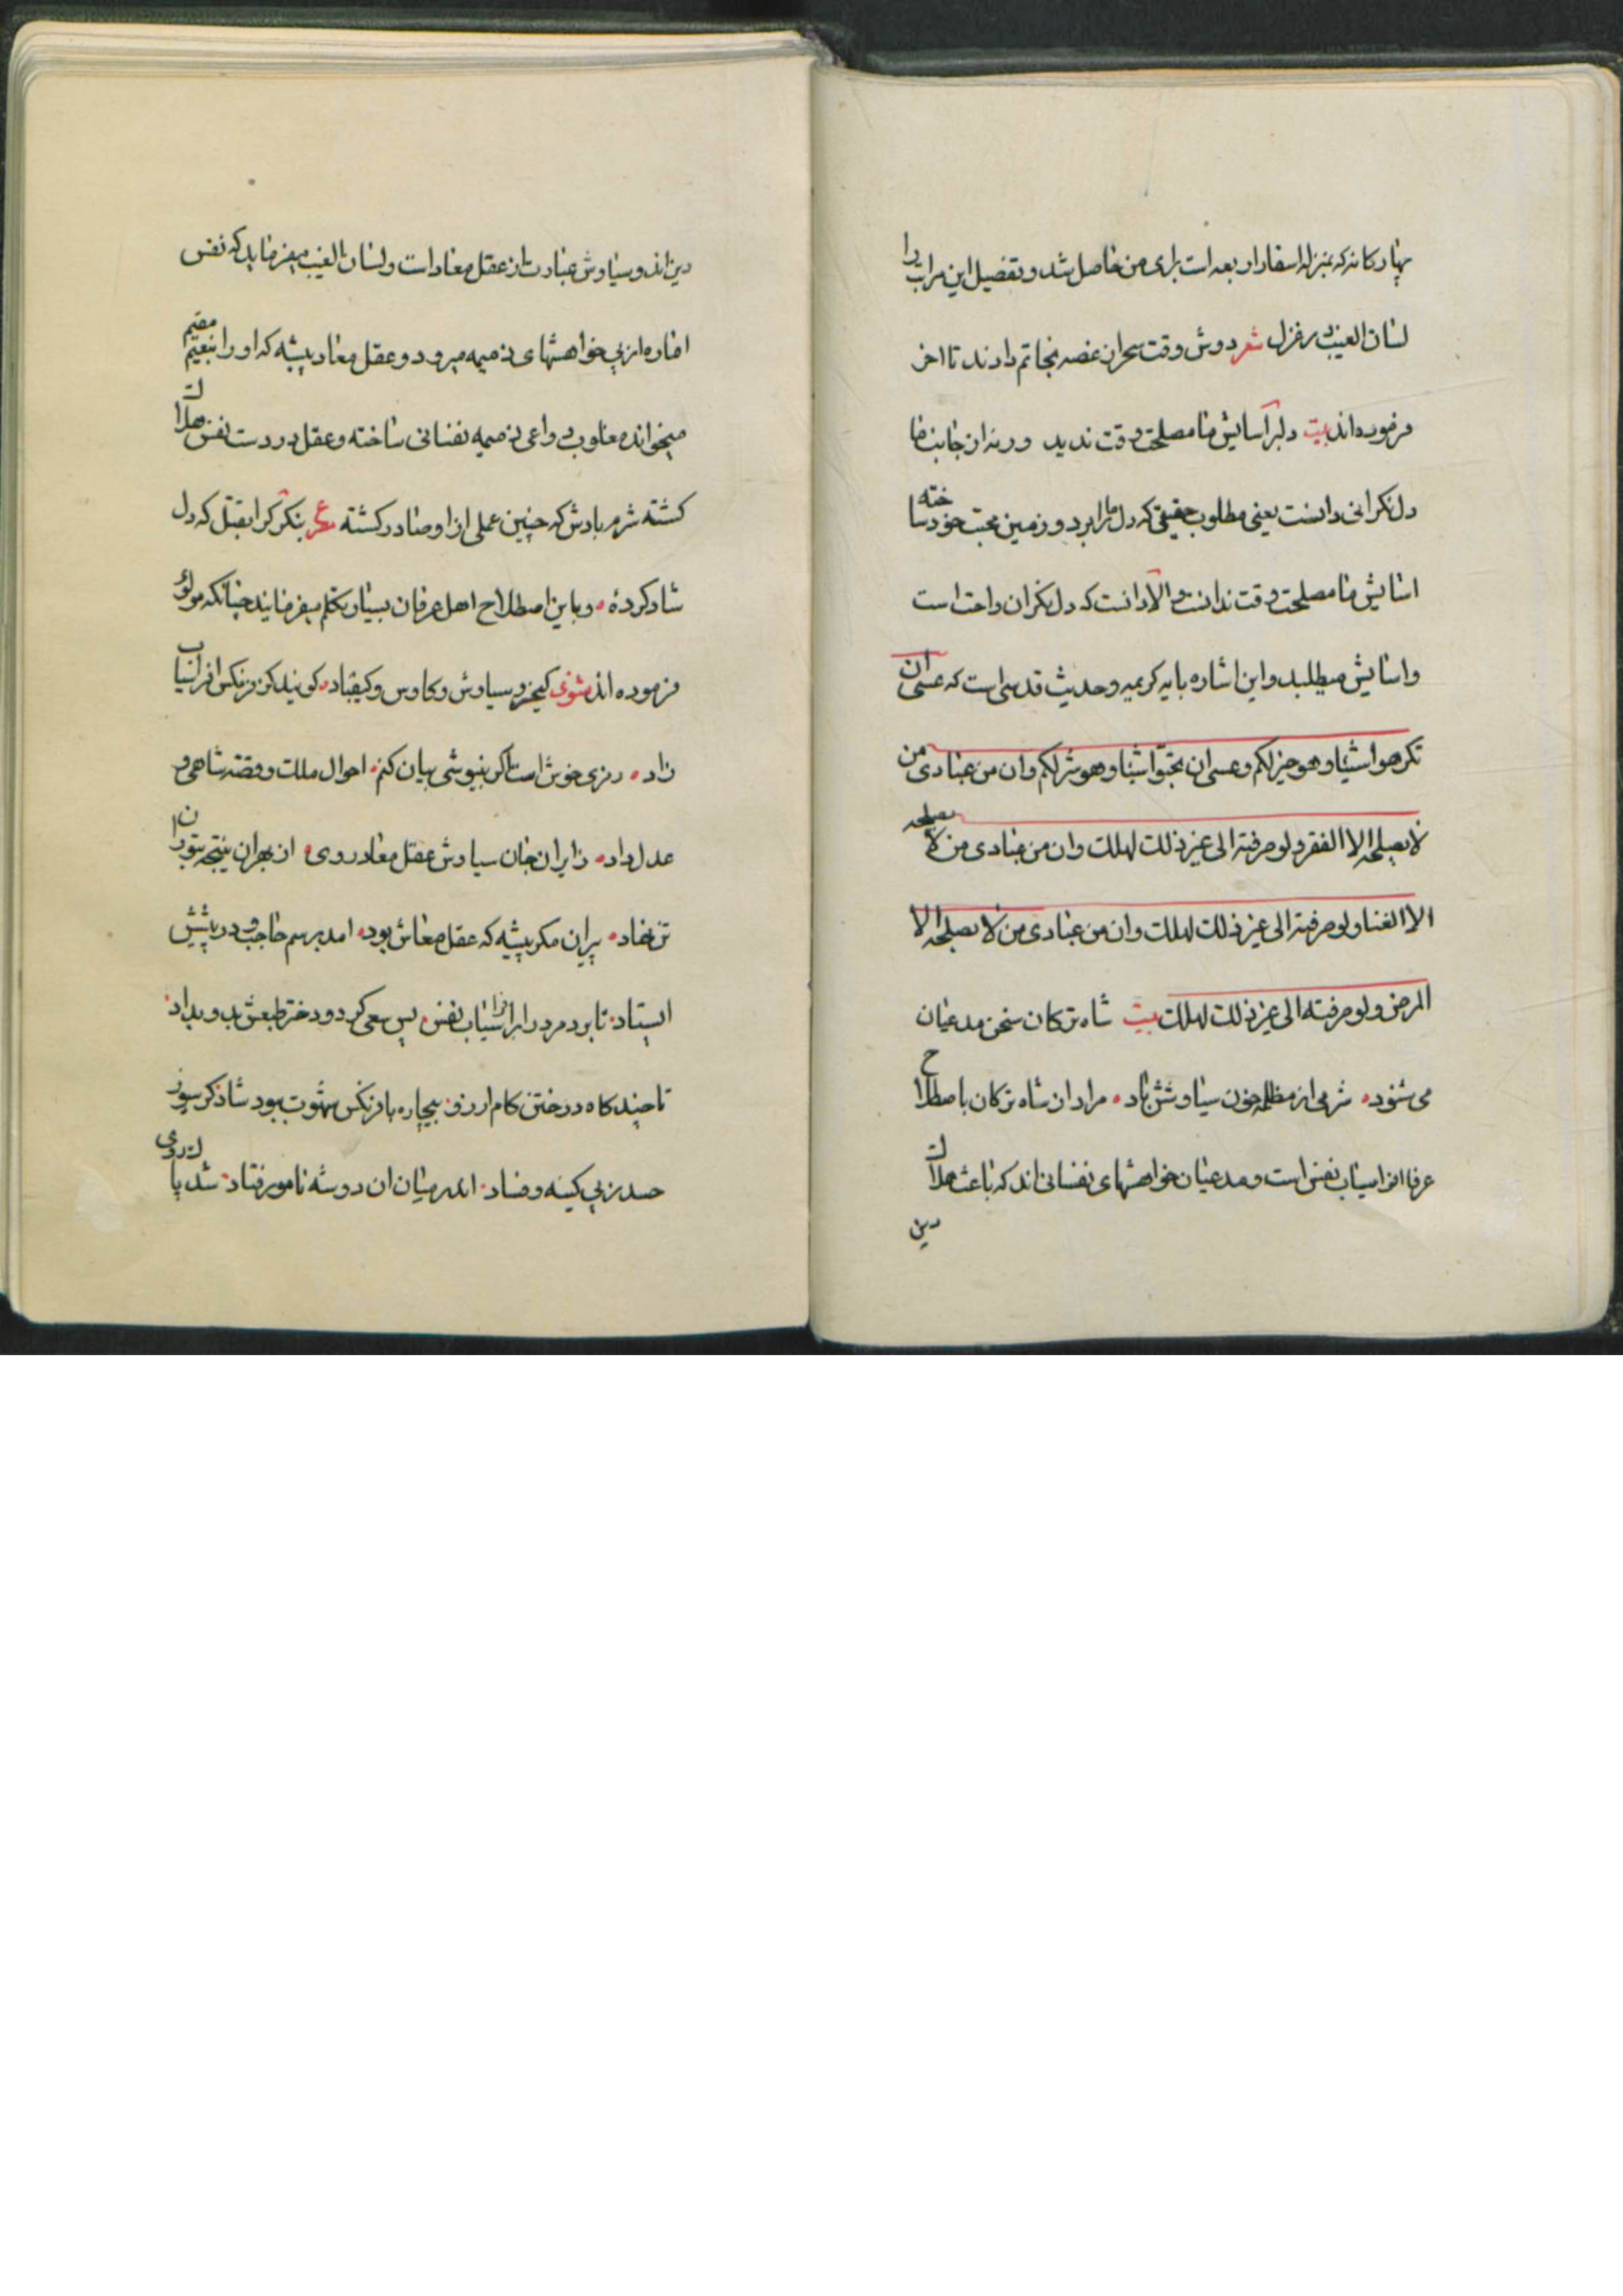 چهار کانه که بمنزله اسفار اربعه است برای من حاصل شد و تفصیل این مراتب را
لسان الغیب در غزل شعر دوش وقت سحر از غصه نجاتم دادند تا اخر
فرموده اند بیت دلبر آسایش ما مصلحت وقت ندید ور نه از جانب ما
دل نکرانی دانست یعنی مطلوب حقیقی که دل ما را برد و زمین محبت خود ساخته
اسایش ما مصلحت وقت ندانست و الا دانست که دل نکران راحت است
و اسایش میطلبد و این اشاره بایه کریمه و حدیث قدسی است که عسی ان
تکرهوا شیئا و هو خیر لکم و عسی ان تحبوا شیئا و هو شر لکم وان من عبادی من
لا یصلحه الا الفقر و لو صرفته الی غیر ذلک لهلک وان من عبادی من لا یصلحه
الا الغنا و لو صرفته الی غیر ذلک لهلک وان من عبادی من لا یصلحه الا
المرض و لو صرفته الی غیر ذلک لهلک بیت شاه ترکان سخن مدعیان
می شنود شرمی از مظلمه خون سیاوشش باد مراد از شاه ترکان باصطلاح
عرفا افراسیاب نفس است و مدعیان خواهشهای نفسانی اند که باعث هلاک
دین
دین اند و سیاوش عبارت از عقل معاد است و لسان الغیب میفرماید که نفس
اماره از پی خواهشهای ذمیمه میرود و عقل معاد پیشه که او را بنعیم مقیم
میخوانده مغلوب دواعی ذمیمه نفسانی ساخته و عقل در دست نفس هلاک
کشته شرم بادش که چنین عملی از او صادر کشته مصرع بنکر کرا بقتل که دل
شاد کردهٔ و باین اصطلاح اهل عرفان بسیار تکلم میفرمایند چنانکه مولوی
فرموده اند مثنوی کیخسرو سیاوش و کاوس و کیقباد کویند کز فرنکس افراسیاب
زاد رمزی خوش است اکر بنیوشی بیان کنم احوال ملک و قصه شاهی و
عدل داد ز ایران جان سیاوش عقل معاد روی از بهر این نتیجه بتوران
تن نهاد پیران مکر پیشه که عقل معاش بود امد برسم حاجب و در پیش
ایستاد تا برد مرد را بر افراسیاب نفس پس سعی کرد و دختر طبعش بدو بداد
تا چند کاه در ختن کام ارزو بیچاره با فرنکس شهوت ببود شاد کرسیوز
حسد ز پی کینه و فساد امد میان ان دو شه نامور فتاد شد با